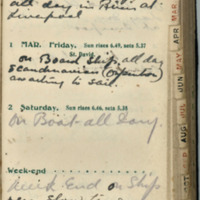 all day in Train at
Liverpool
1 MAR. Friday. Sun rises 6.49, sets 5.37
St. David.
on Board Ship all day
Scandinavian
waiting to sail.
2 Saturday. Sun rises 6.46, sets 5.38
on Boat all Day.
Week-end
Week End on Ship
MAR
APR
MAY
JUN
JUL
AUG